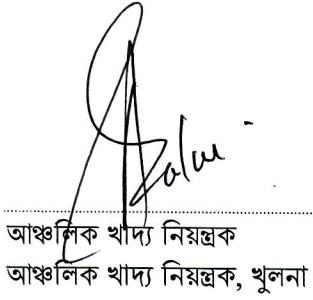 আঞ্চলিক খাদ্য নিয়ন্ত্রক
আঞ্চলিক খাদ্য নিয়ন্ত্রক, খুলনা